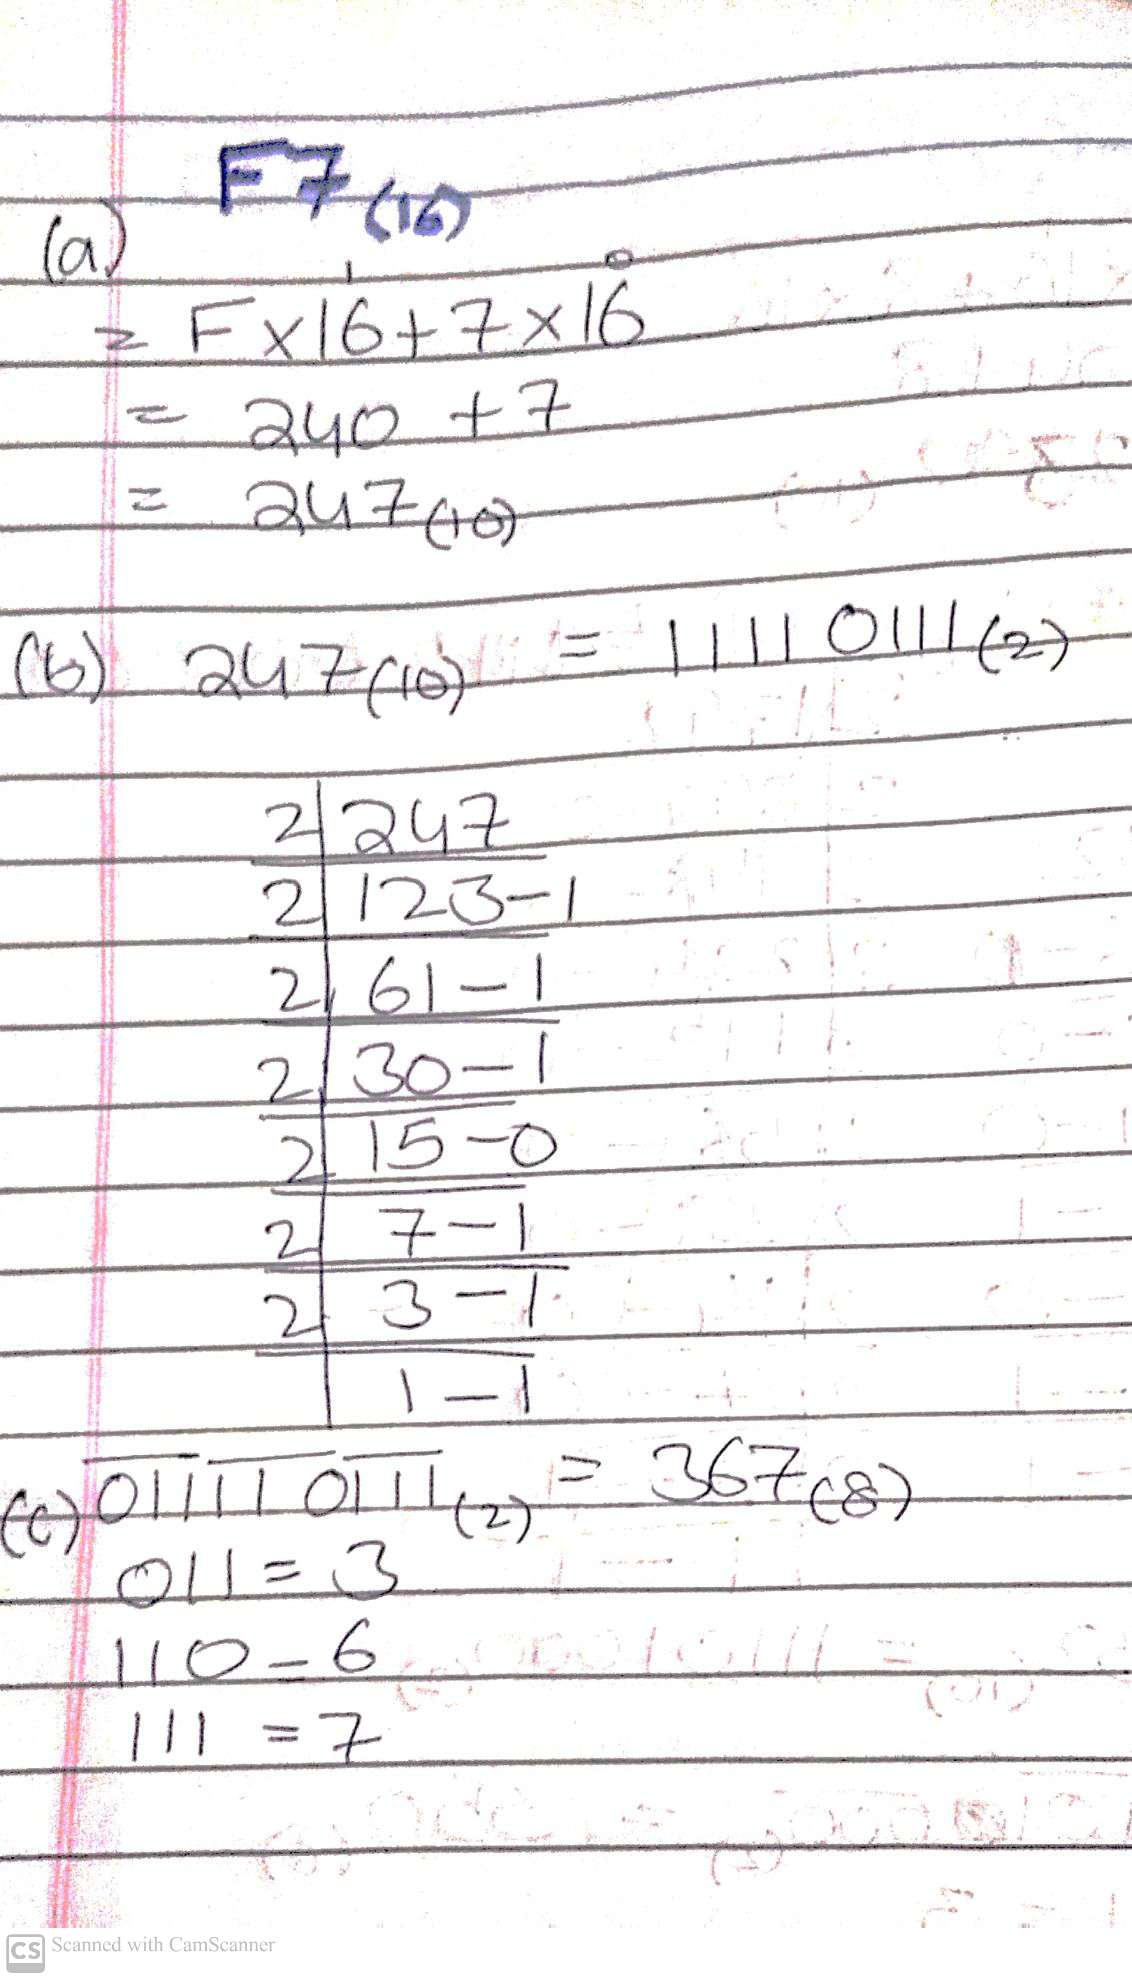 F7(16)
(a)
= F×16¹+7×16⁰
= 240 +7
= 247(10)
(b) 247(10) = 11110111(2)
2|247
2|123-1
2|61-1
2|30-1
2|15-0
2|7-1
2|3-1
1-1
(c) 011110111(2) = 367(8)
011=3
110-6
111=7
CS Scanned with CamScanner